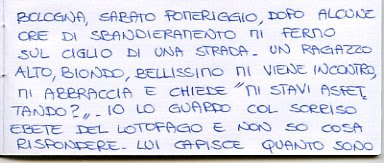 BOLOGNA, SABATO POMERIGGIO, DOPO ALCUNE
ORE DI SBANDIERAMENTO MI FERMO
SUL CIGLIO DI UNA STRADA. UN RAGAZZO
ALTO, BIONDO, BELLISSIMO MI VIENE INCONTRO,
MI ABBRACCIA E CHIEDE "MI STAVI ASPET,
TANDO?„. IO LO GUARDO COL SORRISO
EBETE DEL LOTOFAGO E NON SO COSA
RISPONDERE. LUI CAPISCE QUANTO SONO